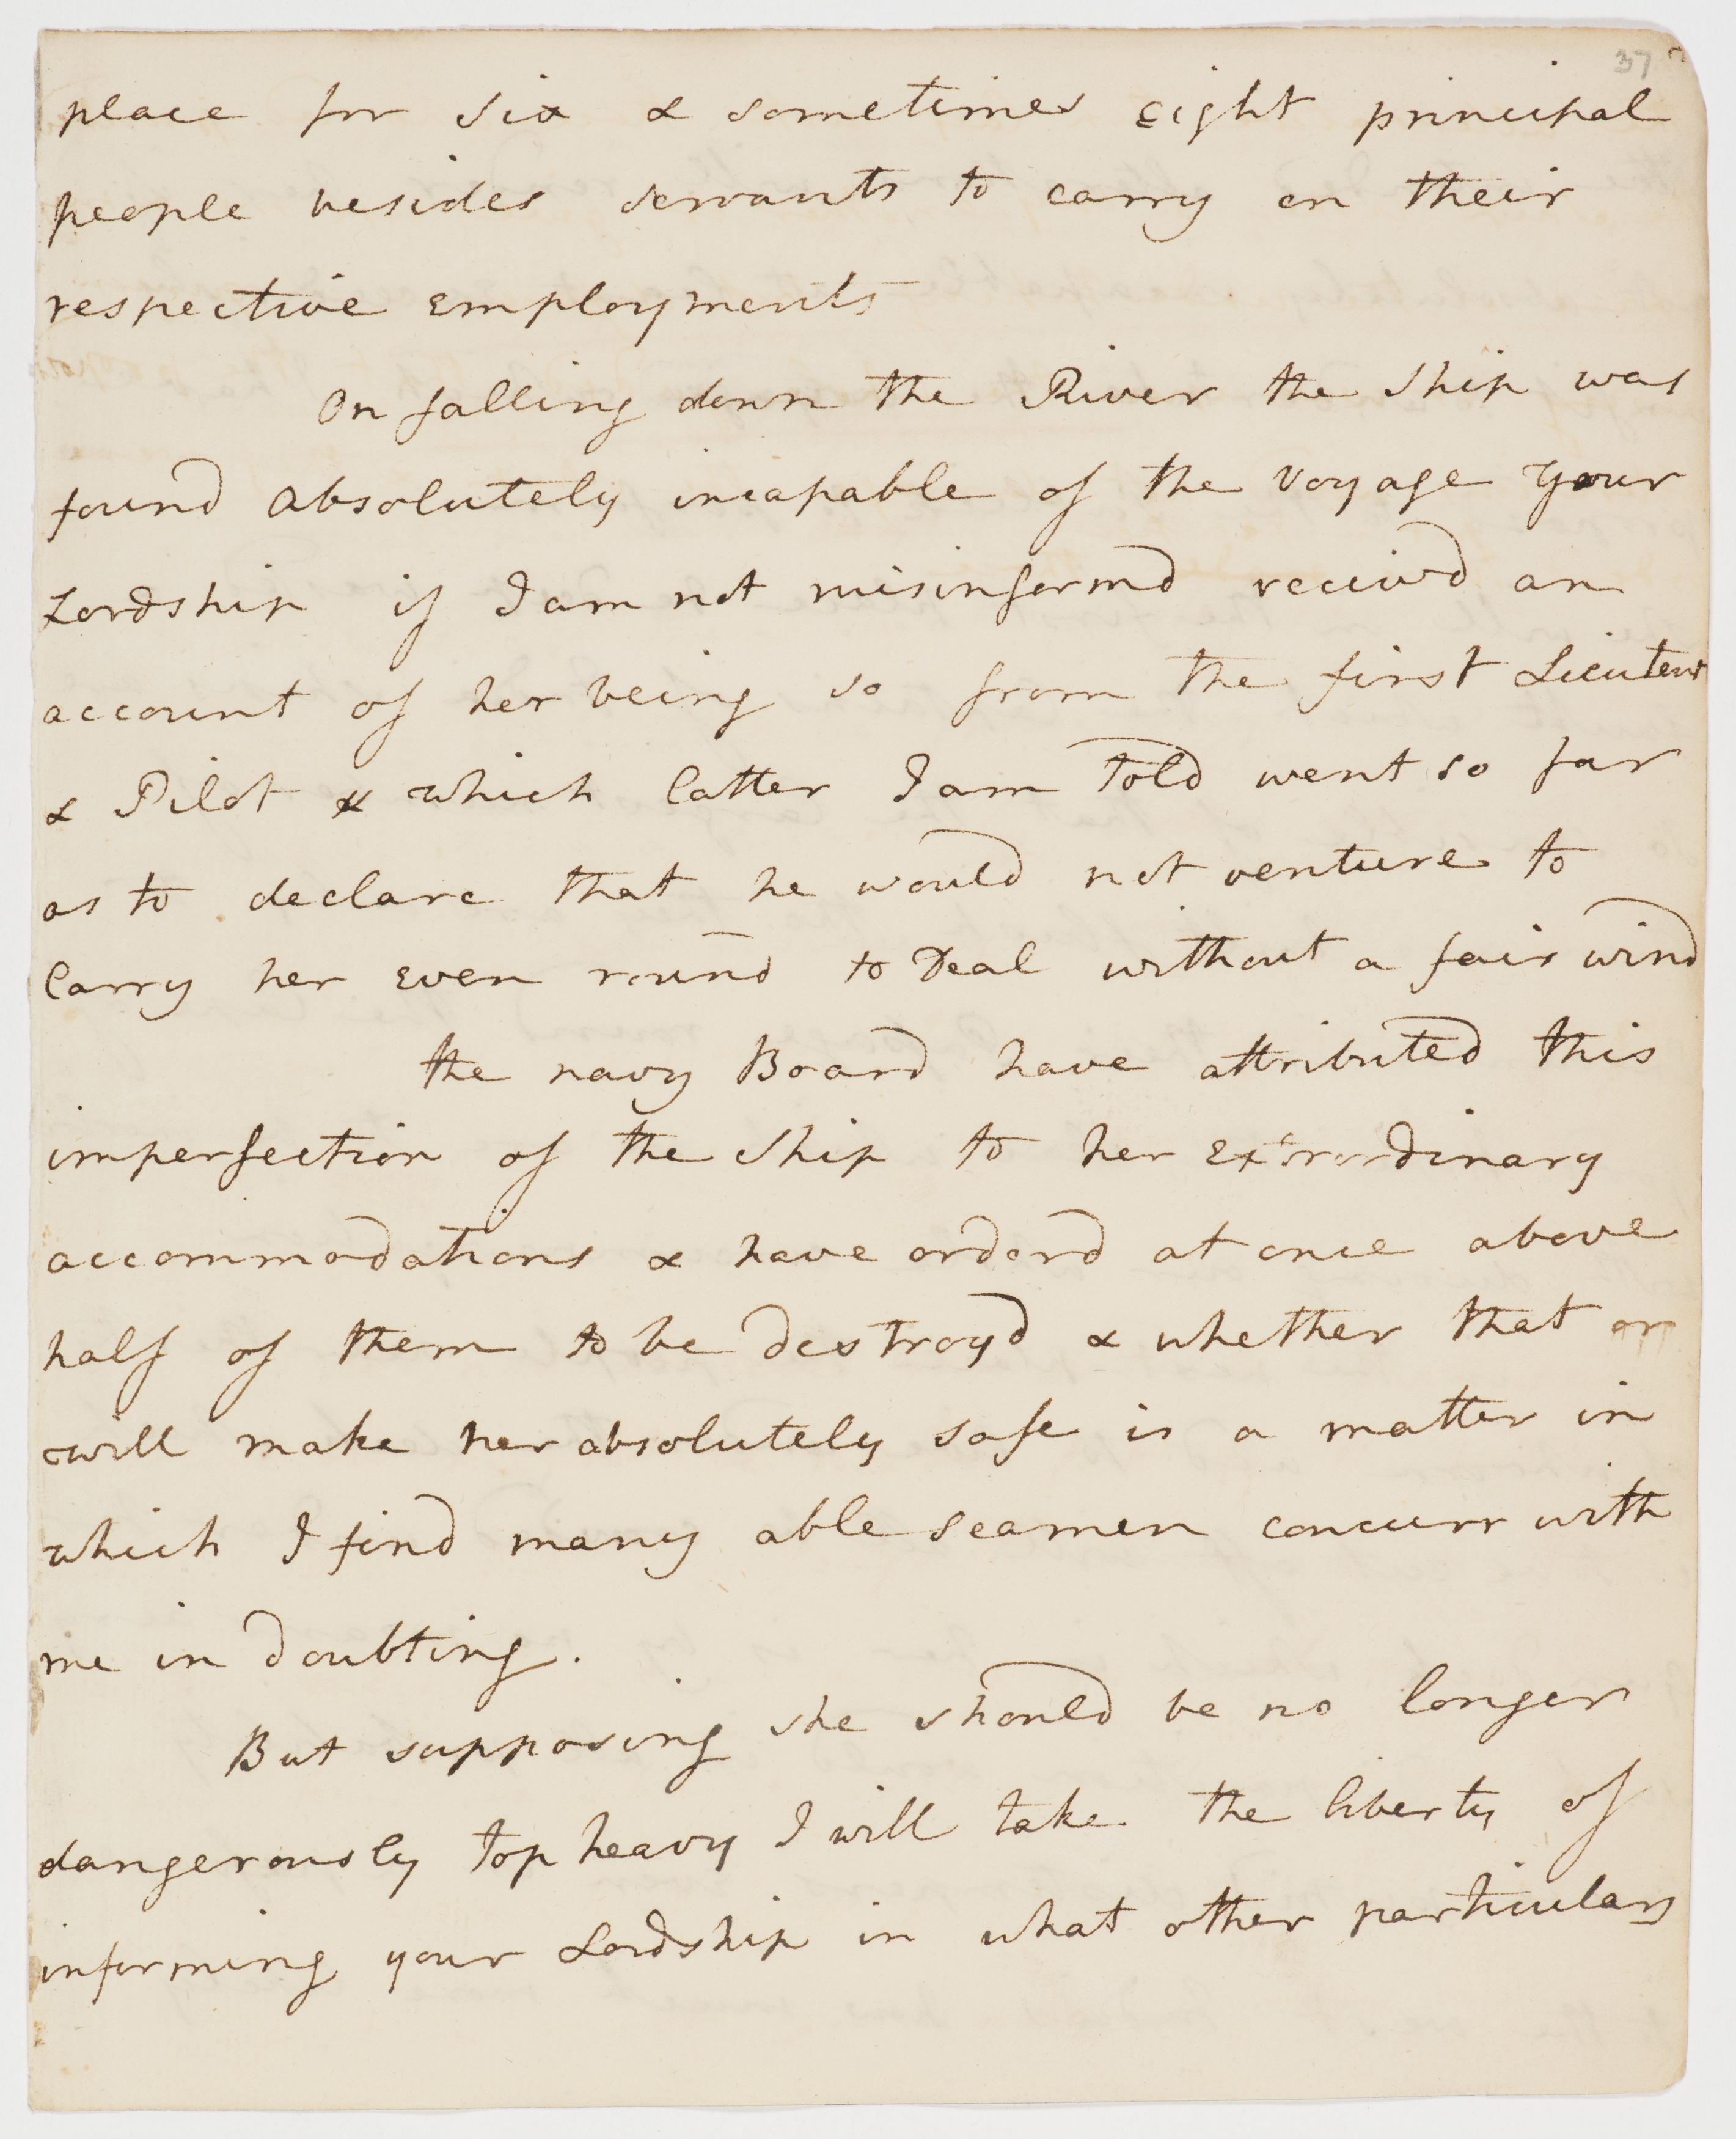 37
place for six & sometimes eight principal
people besides servants to carry on their
respective employments
On falling down the River the ship was
found absolutely incapable of the voyage your
Lordship if I am not misinformd receivd an
account of her being so from the first Lieutent
& Pilot & which latter I am told went so far
as to declare that he would not venture to
Carry her even round to Deal without a fair wind
the navy Board have attributed this
imperfection of the ship to her Extrordinary
accommodations & have orderd at once above
half of them to be destroyd & whether that or
will make her absolutely safe is a matter in
which I find many able seamen concurr with
me in doubting.
But supposing she should be no longer
dangerously top heavy I will take the liberty of
informing your Lordship in what other particulars